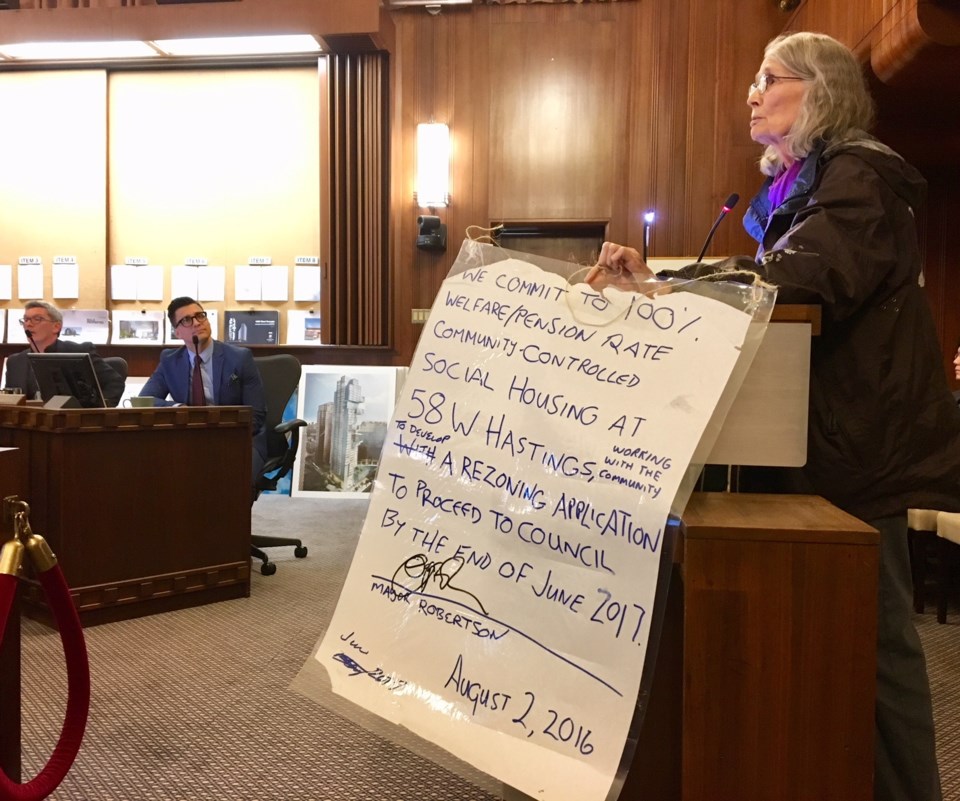 ITEM 3
ITEM 4
ITEM 5
ITEM 6
ITEM 7
ITEM 8
WE COMMIT TO 100%
WELFARE/PENSION RATE
COMMUNITY-CONTROLLED
SOCIAL HOUSING AT
58 W HASTINGS, WORKING WITH THE COMMUNITY
TO DEVELOP
WITH A REZONING APPLICATION
TO PROCEED TO COUNCIL
BY THE END OF JUNE 2017.
MAYOR ROBERTSON
AUGUST 2, 2016